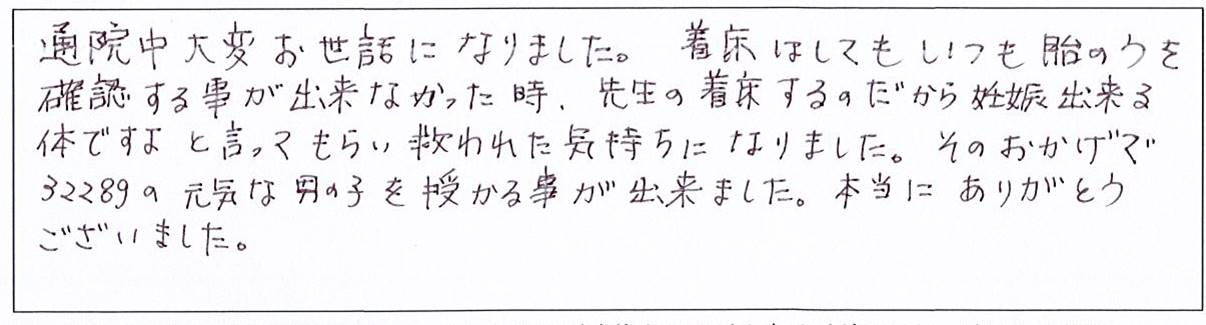 通院中大変お世話になりました。 着床はしてもいつも胎のうを
確認する事が出来なかった時、先生の着床するのだから妊娠出来る
体ですよと言ってもらい救われた気持ちになりました。そのおかげで
3228gの元気な男の子を授かる事が出来ました。本当にありがとう
ございました。